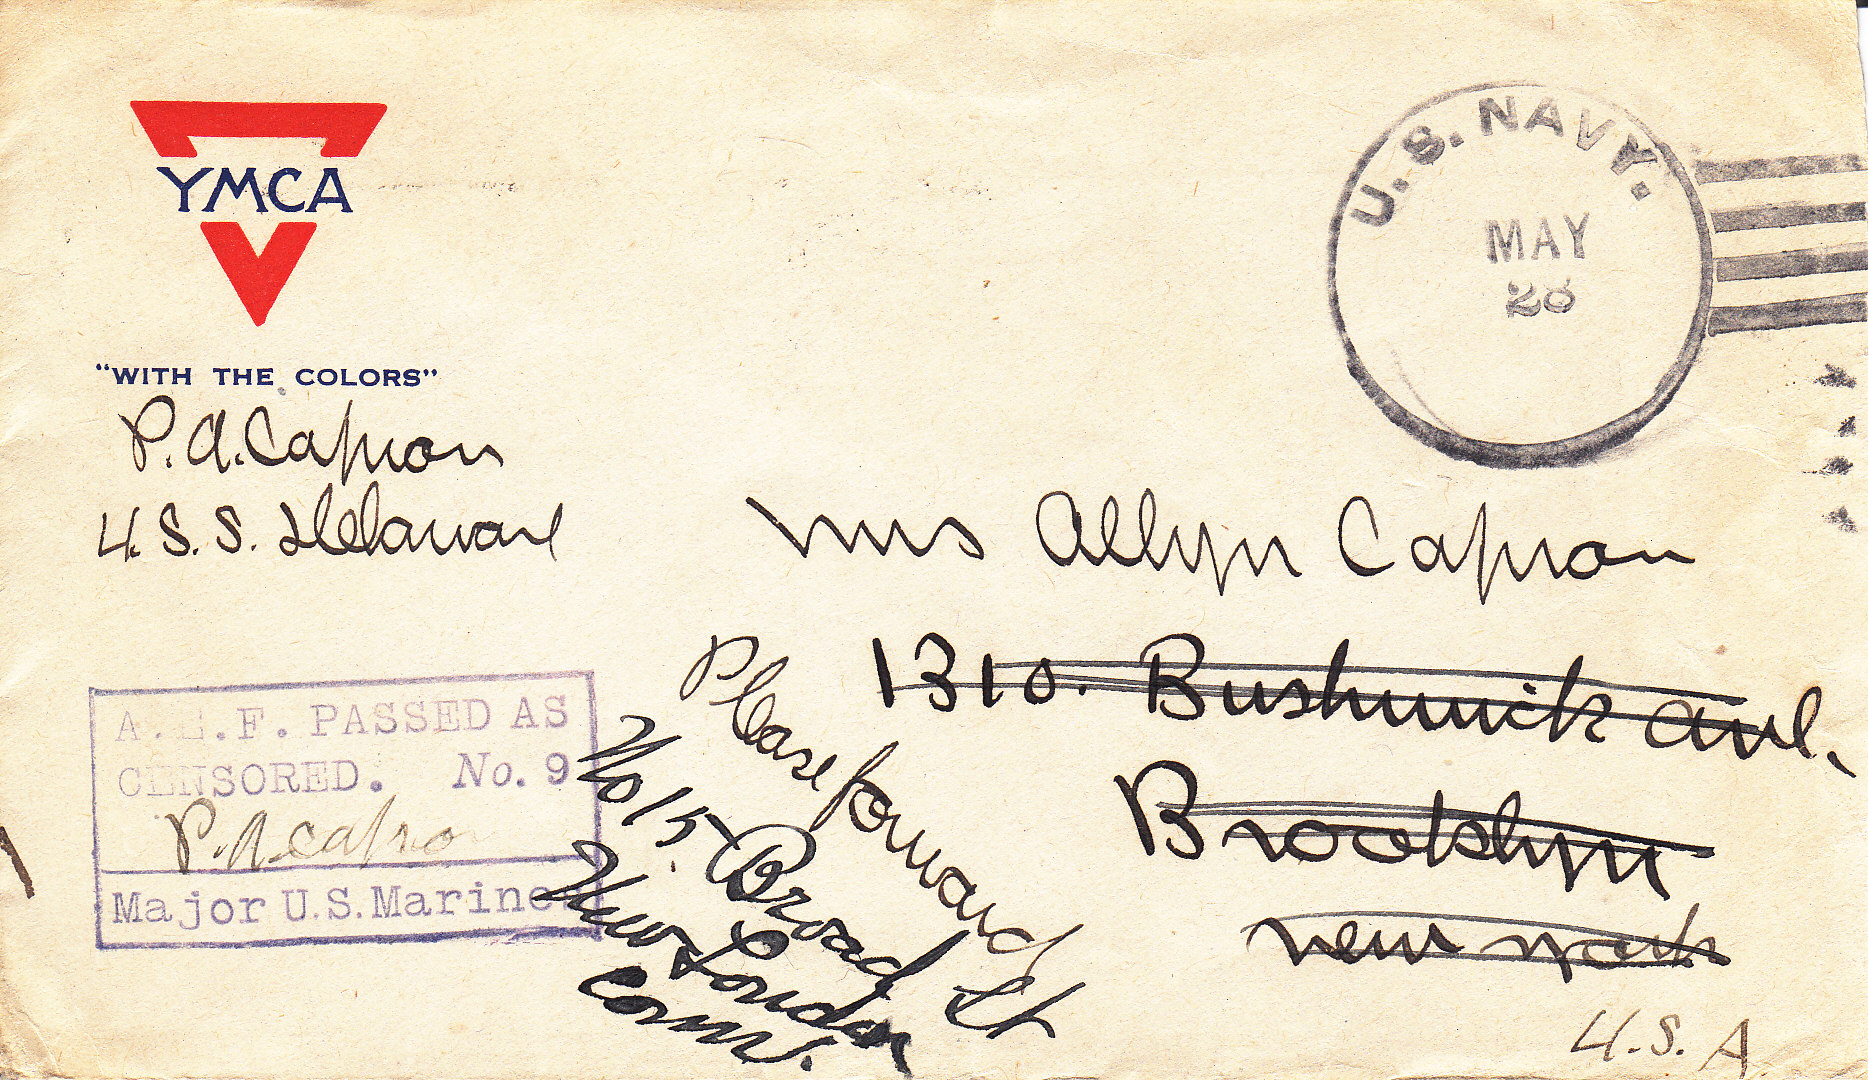 YMCA
"WITH THE COLORS"
P. A. Capron
U.S.S. Delaware
U.S. NAVY.
MAY
Mrs Allyn Capron
1310. Bushwick Ave.
Brooklyn
New York
U.S.A
Please forward
No 15 Broad St
New London
Conn.
A.E.F. PASSED AS
CENSORED. No. 9
P. A. Capro
Major U.S. Marines